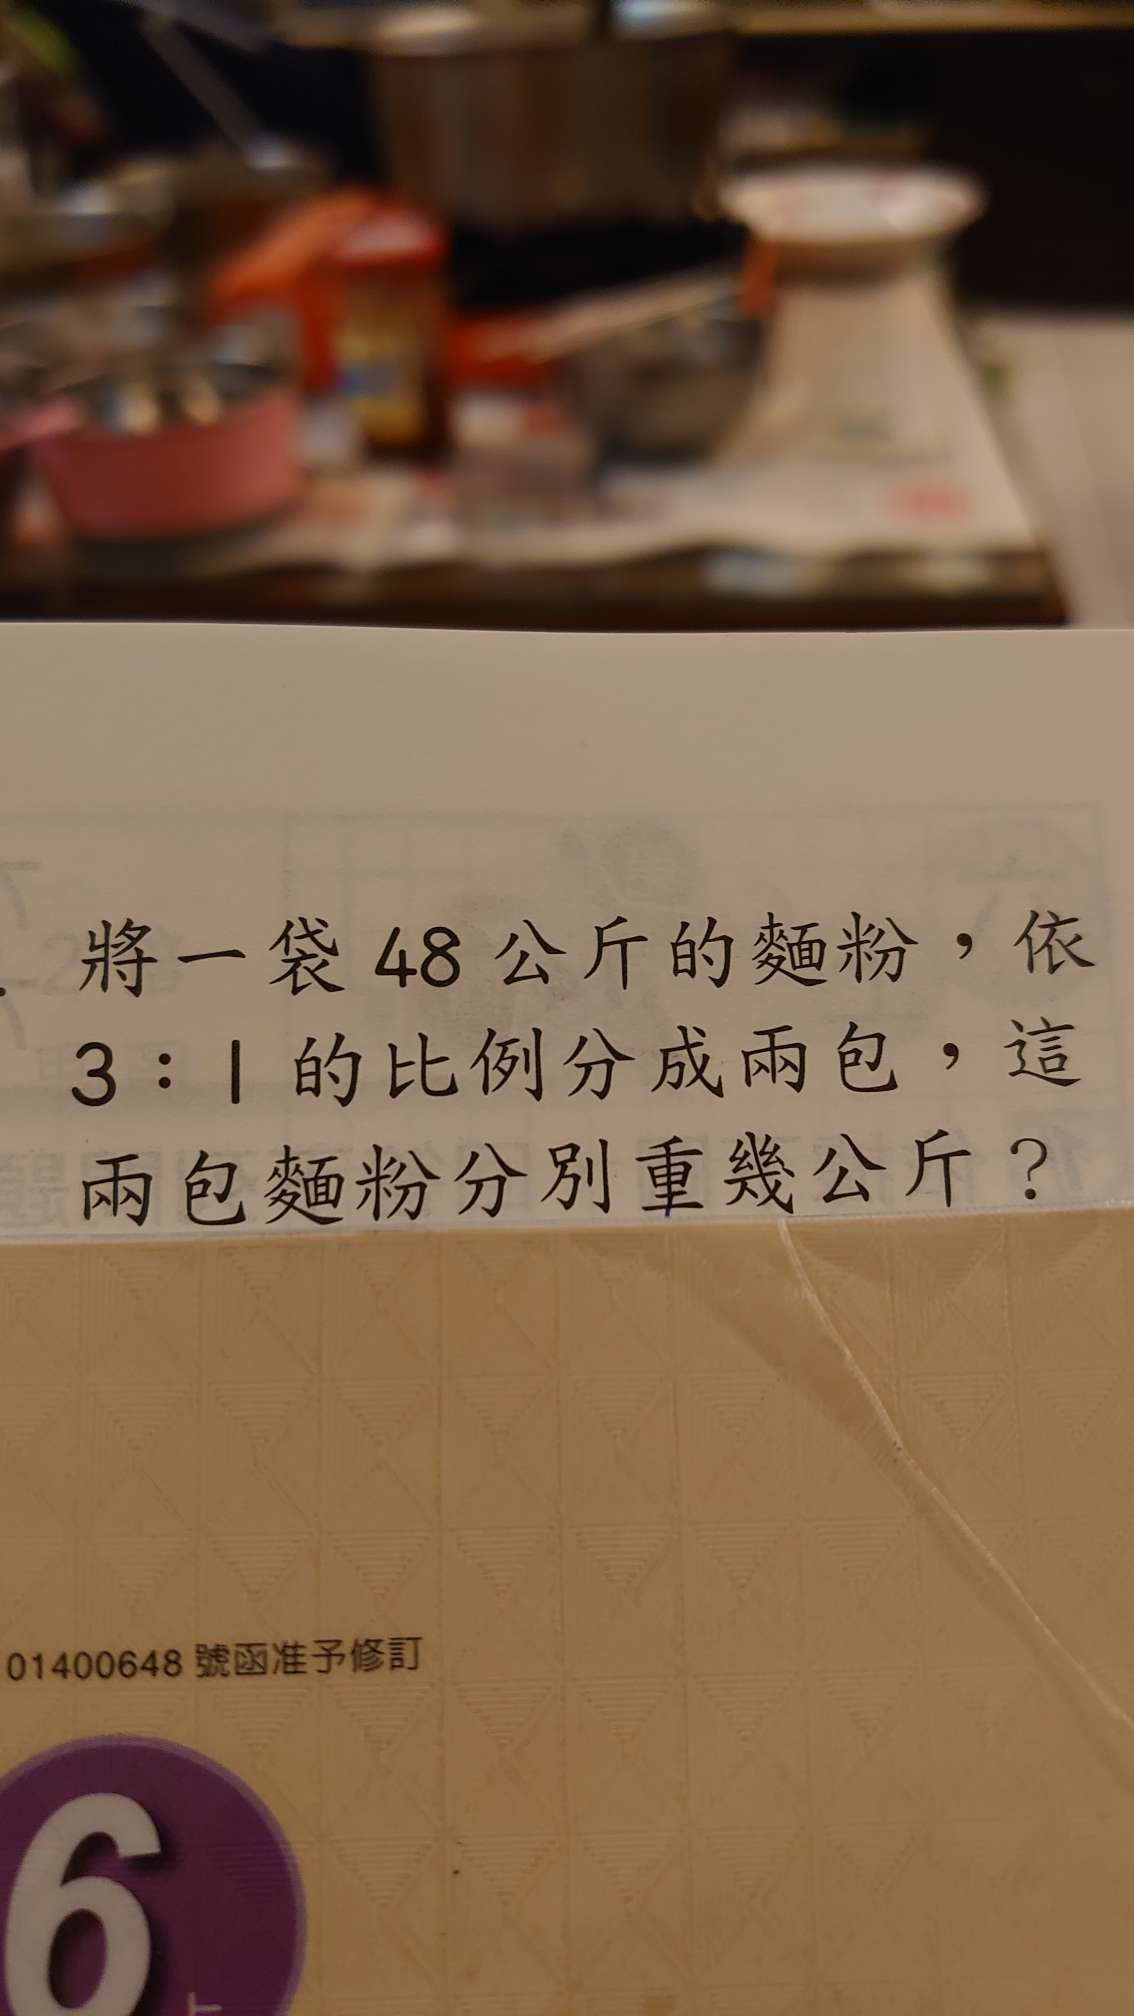 將一袋 48 公斤的麵粉，依
3：1 的比例分成兩包，這
兩包麵粉分別重幾公斤？
01400648 號函准予修訂
6